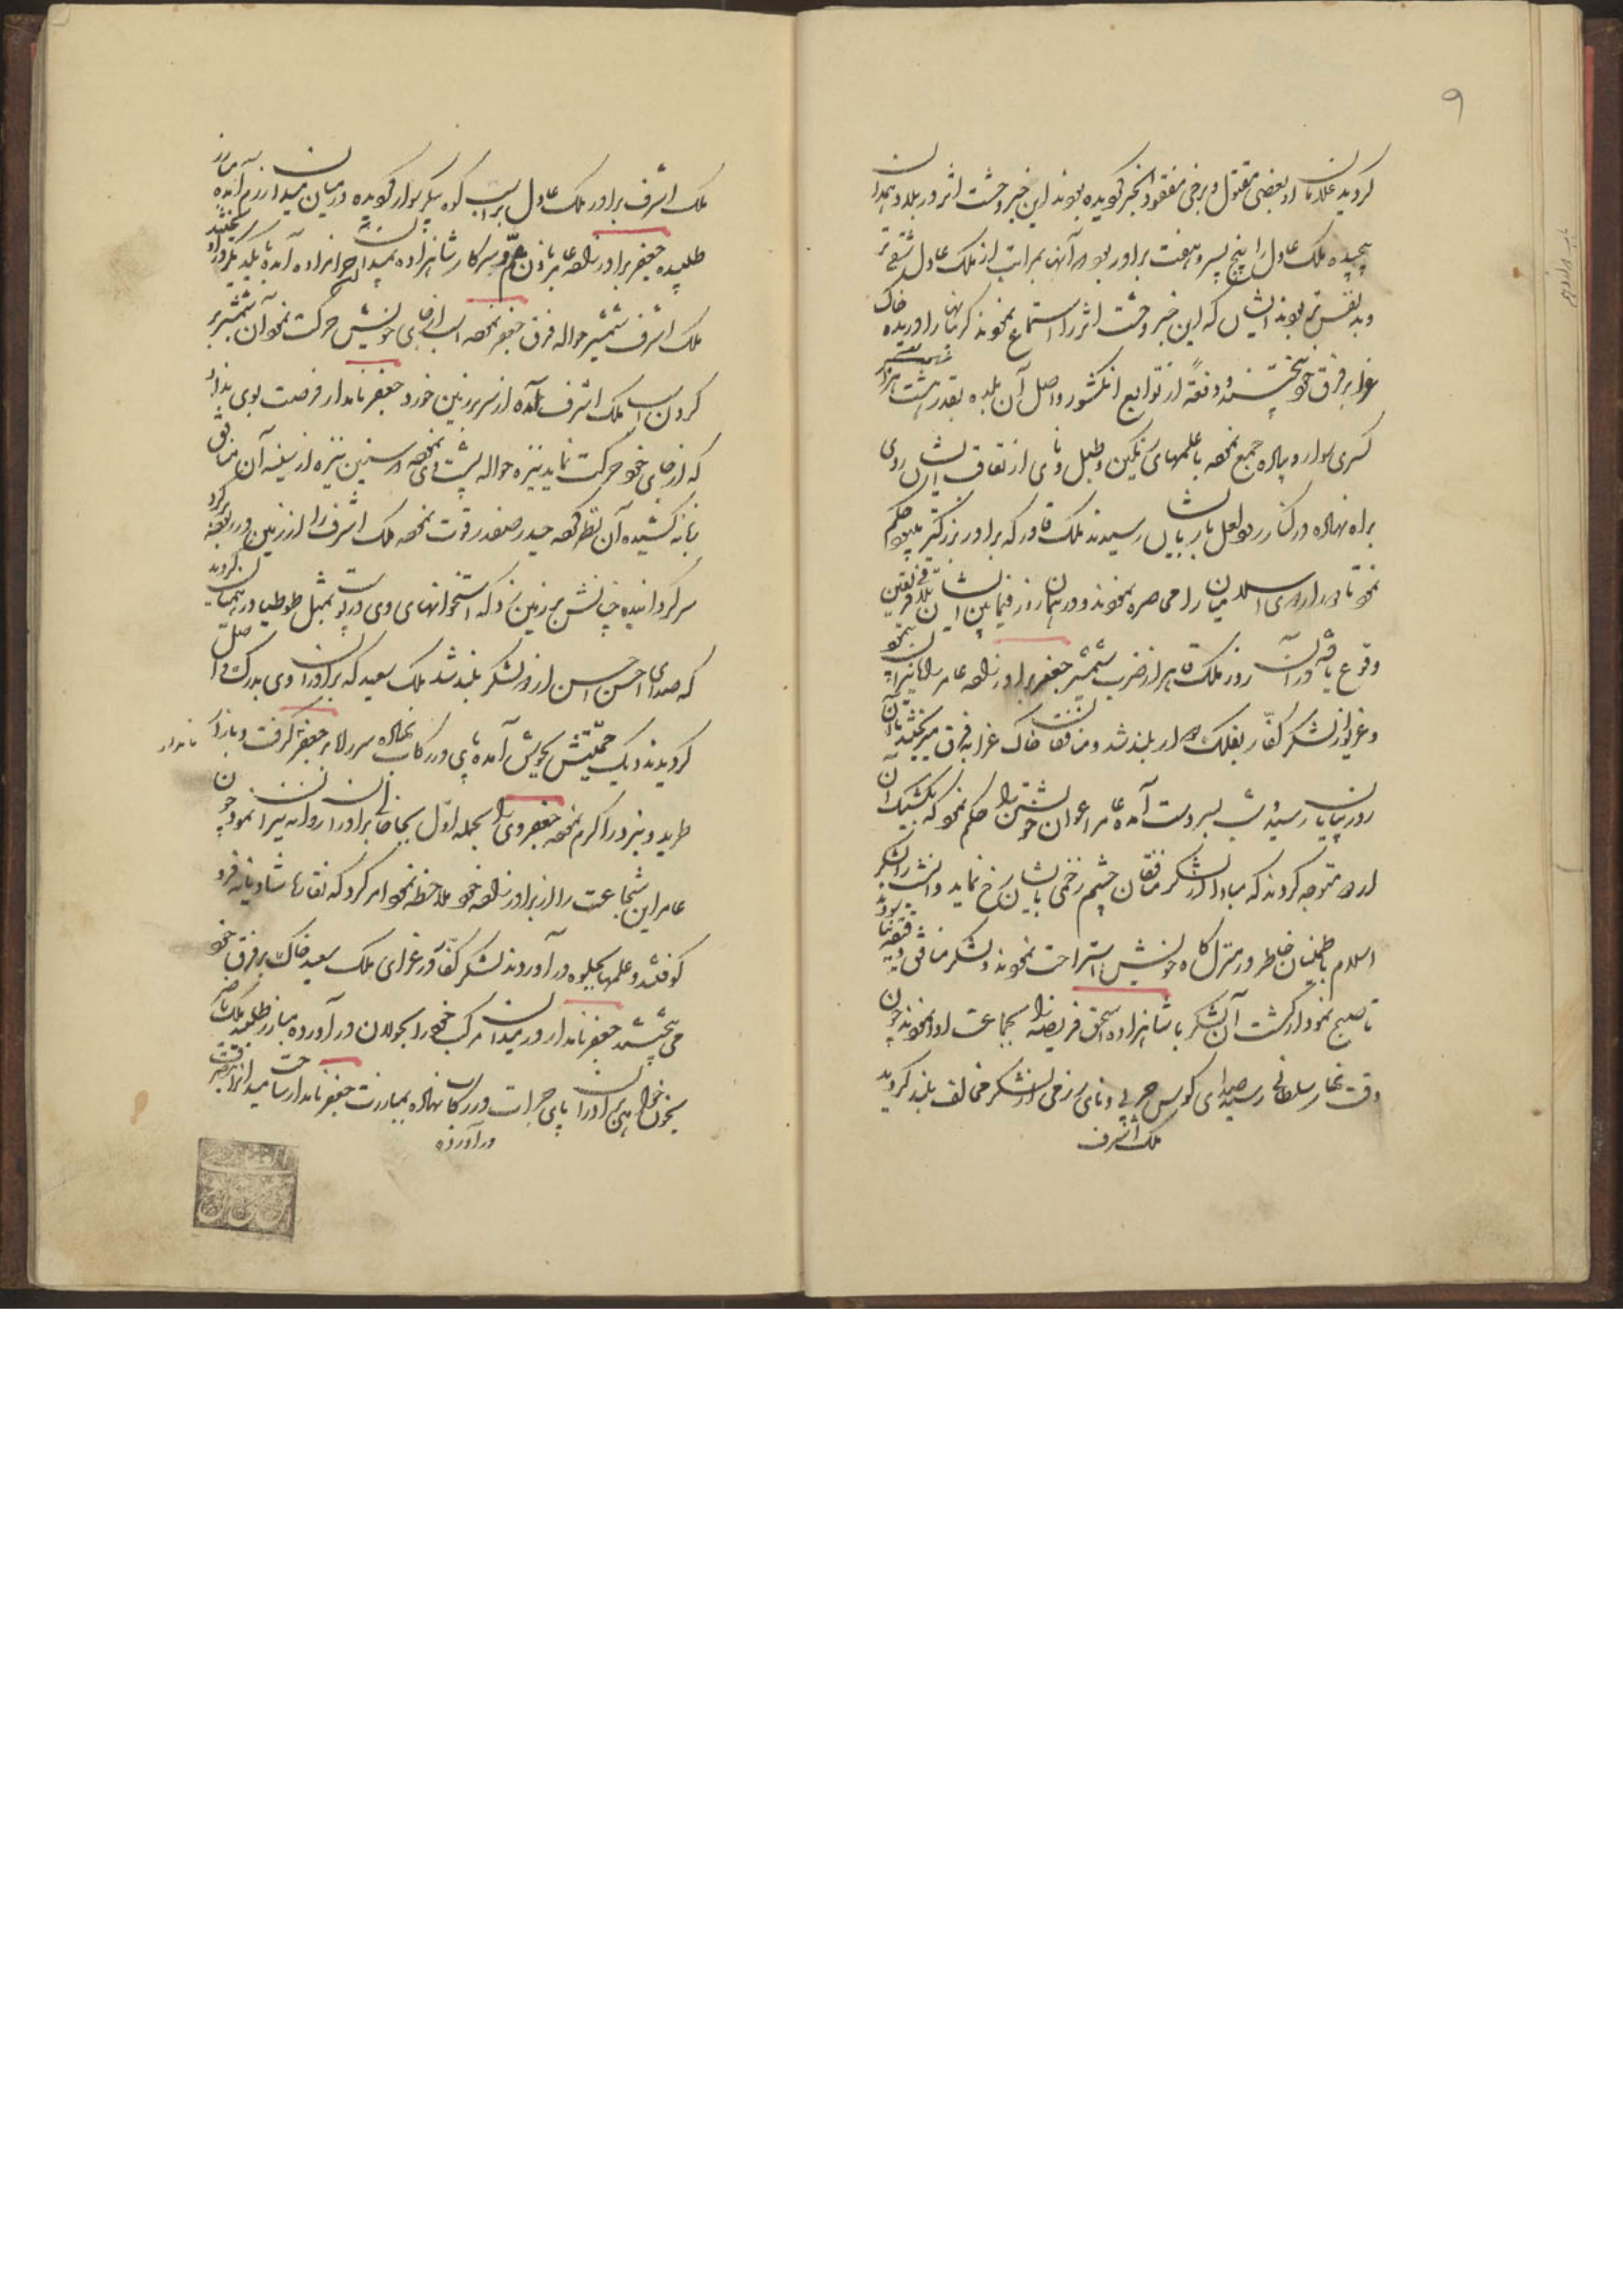 ۹
گردید غلامان او بعضی مقتول و برخی مفقود الخبر گردیده بودند این خبر وحشت اثر در بلد همدان
پیچیده ملک عادل را پنج پسر و هفت برادر بود و آنها بمراتب از ملک عادل شقی تر
و بدنفس تر بودند ایشان که این خبر وحشت اثر را استماع نمودند گریبانها را دریده خاک
عزا بر فرق خود بیختند و دفعةً از توابع آنکشور واصل آن بلده بقدر هشت هزار
کس سوار و پیاده جمع نموده با علمهای رنگین و طبل و نای از نفاق ایشان روی
براه نهاده در کنار رود لعل بار بایشان رسیدند ملک قاور که برادر بزرگتر بود حکم
نمود تا دور اردوی اسلامیان را محاصره نمودند و در همان روز فیمابین ایشان تلاقی فریقین
وقوع یافته در آن روز ملک قاهر از ضرب شمشیر جعفر برادرزاده عامر راه نیران پیمود
و غریو از لشکر کفار بفلک دوار بلند شد و منافقان خاک عزا به فرق میریختند تا آن
روز بپایان رسیده شب بسر دست آمده عامر اعوان خویشتن را حکم نمود که بکشیک آن
اردو متوجه گردند که مبادا از لشکر منافقان چشم زخمی بایشان رخ نماید و آنشب را لشکر
اسلام باطمینان خاطر در منزلگاه خویش استراحت نمودند و لشکر منافق
تا صبح نمودار گشت آن لشکر با شاهزاده اسحق فریضه را بجماعت ادا نمودند چون
وقت نهار سلطانی رسید صدای کوس حربی و نای رزمی از لشکر مخالف بلند گردید
ملک اشرف
ملک اشرف برادر ملک عادل بر اسب کوه پیکر سوار گردیده در میان میدان رزم آمده مبارز
طلبیده جعفر برادرزاده عامر باذن عم و سرکار شاهزاده بمیدان آن حرامزاده آمده با یکدیگر در آویختند
ملک اشرف شمشیر حواله فرق جعفر نموده اسب از جای خویش حرکت نمود آن شمشیر بر
گردن اسب ملک اشرف آمده از سر بر زمین خورد جعفر نامدار فرصت بوی نداد
که از جای خود حرکت نماید نیزه حواله پشت وی نموده سنین نیزه از سینه آن منافق
زبانه کشیده آن نظر کرده حیدر صفدر قوت نموده ملک اشرف را از زمین در ربود و گرد
سر گردانیده چنانش بر زمین زد که استخوانهای وی در پوست بمثل طوطیا درهم شکسته گردید
که صدای احسن احسن از دو لشکر بلند شد ملک سعید که برادران وی بدرک واصل
گردیدند دیگ حمیتش بجوش آمده پای در رکاب نهاده سر راه بر جعفر گرفت و بنای
نامدار
طرید و نبرد را گرم نموده جعفر وی را بحمله اول بجای برادران روانه نیران نمود چون
عامر این شجاعت را از برادرزاده خود ملاحظه نمود امر کرد که نقارها شادیانه فرو
کوفتند و علمها بجلوه در آوردند لشکر کفار در عزای ملک سعید خاک بر فرق خود
می بیختند جعفر نامدار در میدان مرکب خود را بجولان در آورده مبارز طلبید ملک ناصر
بخون خواهی برادران پای جرات در رکاب نهاده بمبارزت جعفر نامدار ساحت میدان را
در آورده